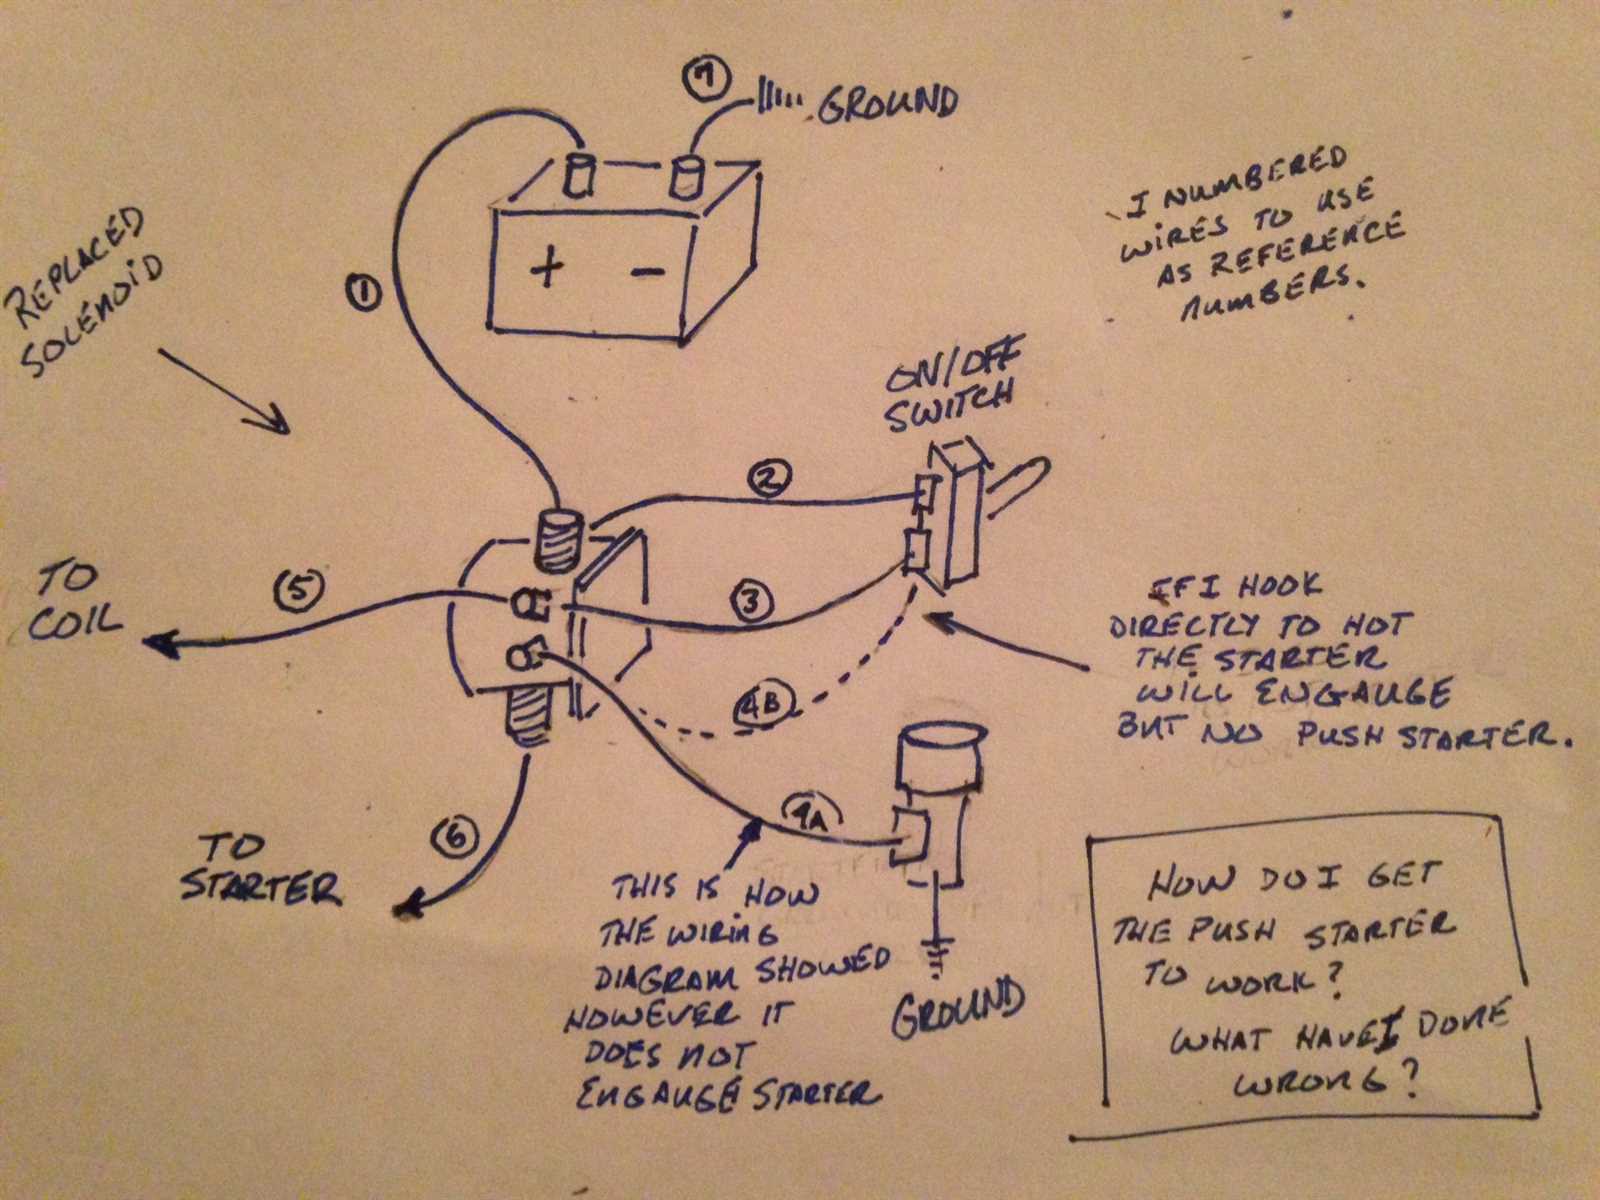 7
GROUND
I NUMBERED
WIRES TO USE
AS REFERENCE
NUMBERS.
REPLACED
SOLENOID
1
+ -
ON/OFF
SWITCH
2
TO
COIL
5
3
4B
IF I HOOK
DIRECTLY TO HOT
THE STARTER
WILL ENGAUGE
BUT NO PUSH STARTER.
TO
STARTER
6
4A
THIS IS HOW
THE WIRING
DIAGRAM SHOWED
HOWEVER IT
DOES NOT
ENGAUGE STARTER
GROUND
HOW DO I GET
THE PUSH STARTER
TO WORK?
WHAT HAVE I DONE
WRONG?